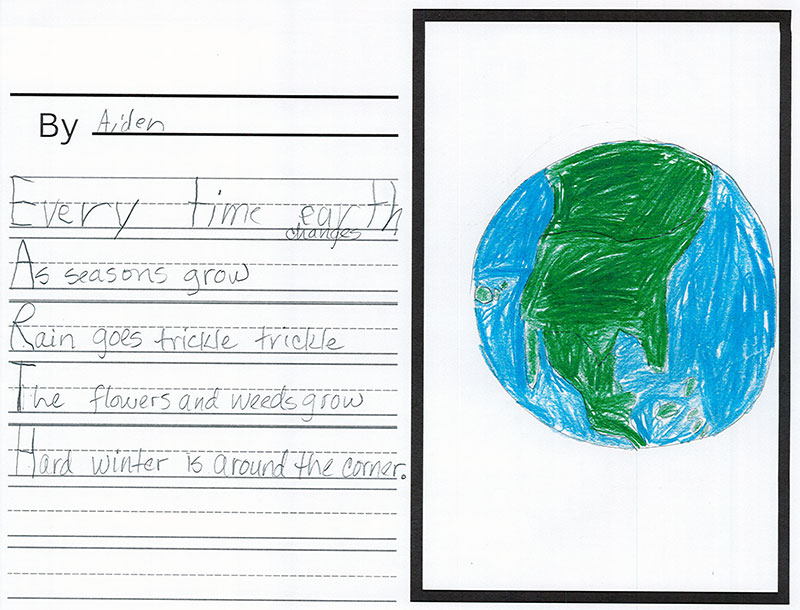 By Aiden
Every time earth
changes
As seasons grow
Rain goes trickle trickle
The flowers and weeds grow
Hard winter is around the corner.